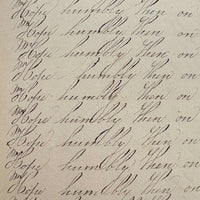 Hope humbly then on
My Hope humbly then on
My Hope humbly then on
My Hope humbly then on
My Hope humbly then on
My Hope humbly then on
My Hope humbly then on
My Hope humbly then on